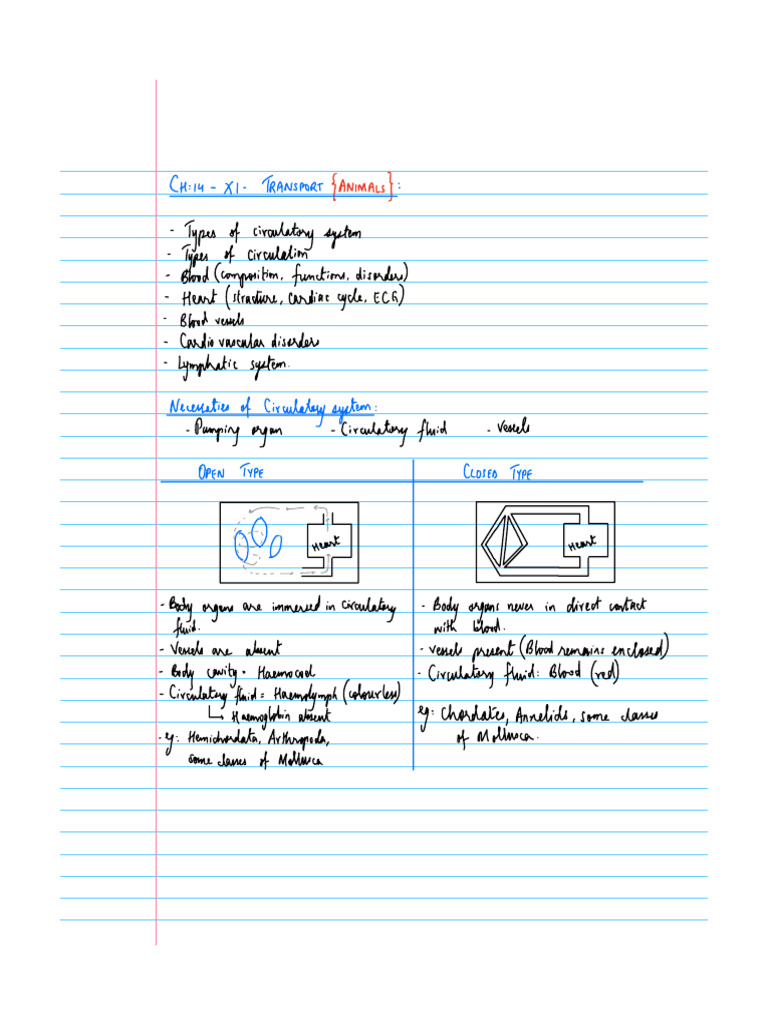 CH:14 - XI - TRANSPORT {ANIMALS}:
- Types of circulatory system
- Types of circulation
- Blood (composition, functions, disorders)
- Heart (structure, cardiac cycle, ECG)
- Blood vessels
- Cardio vascular disorders
- Lymphatic system.
Necessities of Circulatory system:
- Pumping organ - Circulatory fluid - Vessels
OPEN TYPE
Heart
- Body organs are immersed in circulatory
fluid.
- Vessels are absent
- Body cavity = Haemocoel
- Circulatory fluid = Haemolymph (colourless)
↳ Haemoglobin absent
- eg: Hemichordata, Arthropoda,
some classes of Mollusca
CLOSED TYPE
Heart
- Body organs never in direct contact
with blood.
- Vessels present (Blood remains enclosed)
- Circulatory fluid: Blood (red)
eg: Chordates, Annelids, some classes
of Mollusca.